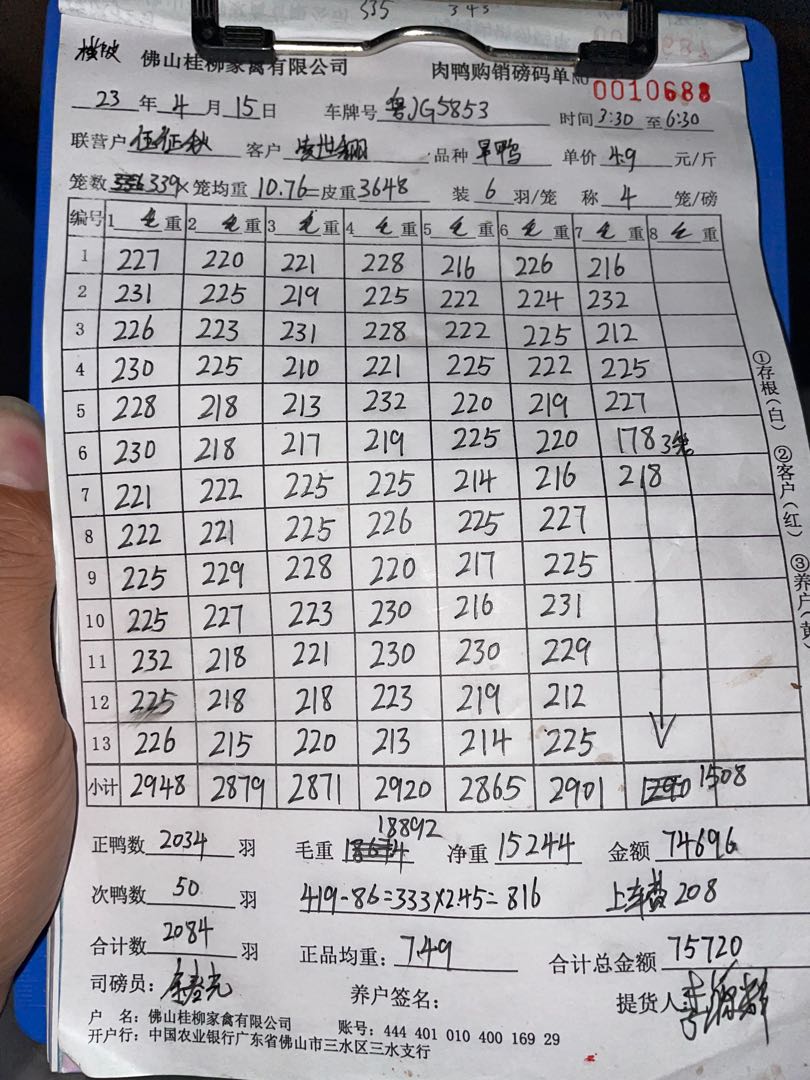 535 343
佛山桂柳家禽有限公司 肉鸭购销磅码单 NO 0010688
23 年 4 月 15 日 车牌号 粤JG5853 时间 3:30 至 6:30
联营户 伍征秋 客户 凌世翮 品种 旱鸭 单价 4.9 元/斤
笼数 339 × 笼均重 10.76 = 皮重 3648 装 6 羽/笼 称 4 笼/磅
编号 1 毛 重 2 毛 重 3 毛 重 4 毛 重 5 毛 重 6 毛 重 7 毛 重 8 毛 重
1 227 220 221 228 216 226 216
2 231 225 219 225 222 224 232
3 226 223 231 228 222 225 212
4 230 225 210 221 225 222 225
5 228 218 213 232 220 219 227
6 230 218 217 219 225 220 178 3笼
7 221 222 225 225 214 216 218
8 222 221 225 226 225 227
9 225 229 228 220 217 225
10 225 227 223 230 216 231
11 232 218 221 230 230 229
12 225 218 218 223 219 212
13 226 215 220 213 214 225
小计 2948 2879 2871 2920 2865 2901 1290 1508
①存根(白) ②客户(红) ③养户(黄
18892
正鸭数 2034 羽 毛重 净重 15244 金额 74696
次鸭数 50 羽 419-86=333×2.45=816 上车费 208
合计数 2084 羽 正品均重: 7.49 合计总金额 75720
司磅员: 养户签名: 提货人
户 名: 佛山桂柳家禽有限公司 账号: 444 401 010 400 169 29
开户行: 中国农业银行广东省佛山市三水区三水支行